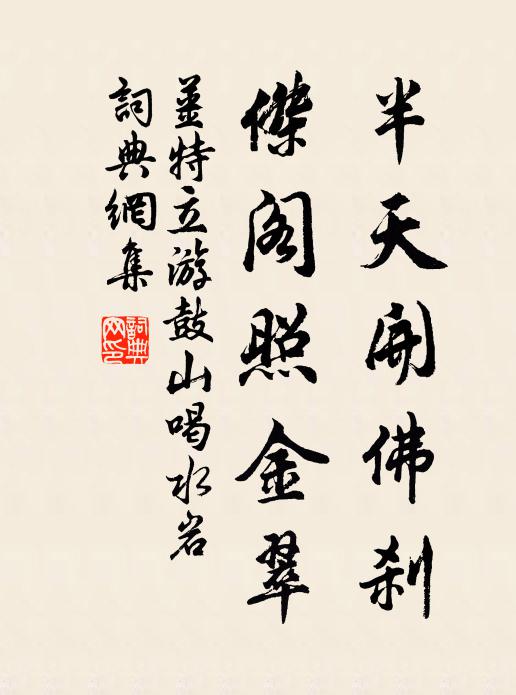 半天開佛刹
傑阁照金翠
姜特立游鼓山喝水岩
詞典網集
詞典網印